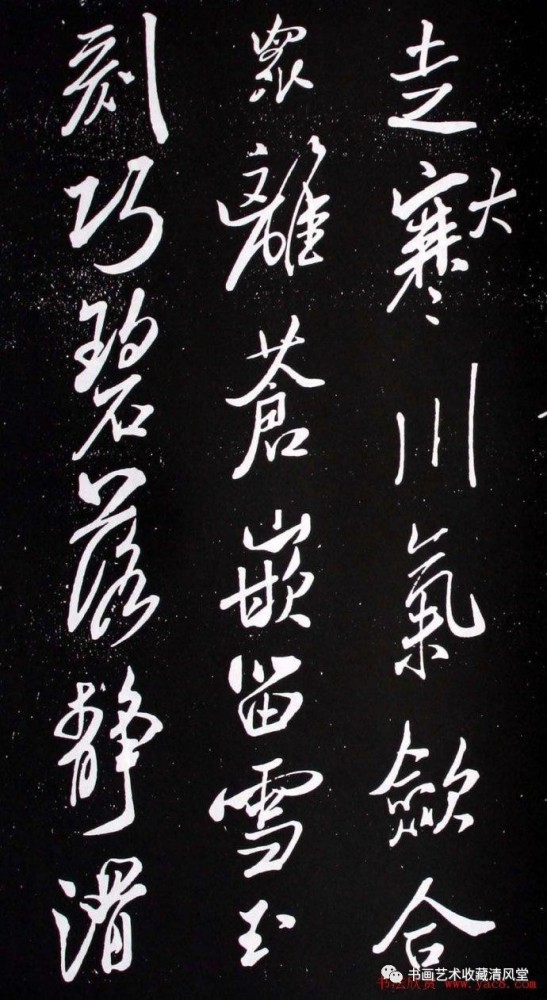 走大寒川氣歛合
眾離蒼嵌留雪玉
刻巧碧落靜
书画艺术收藏清风堂
书法欣赏 www.yac8.com